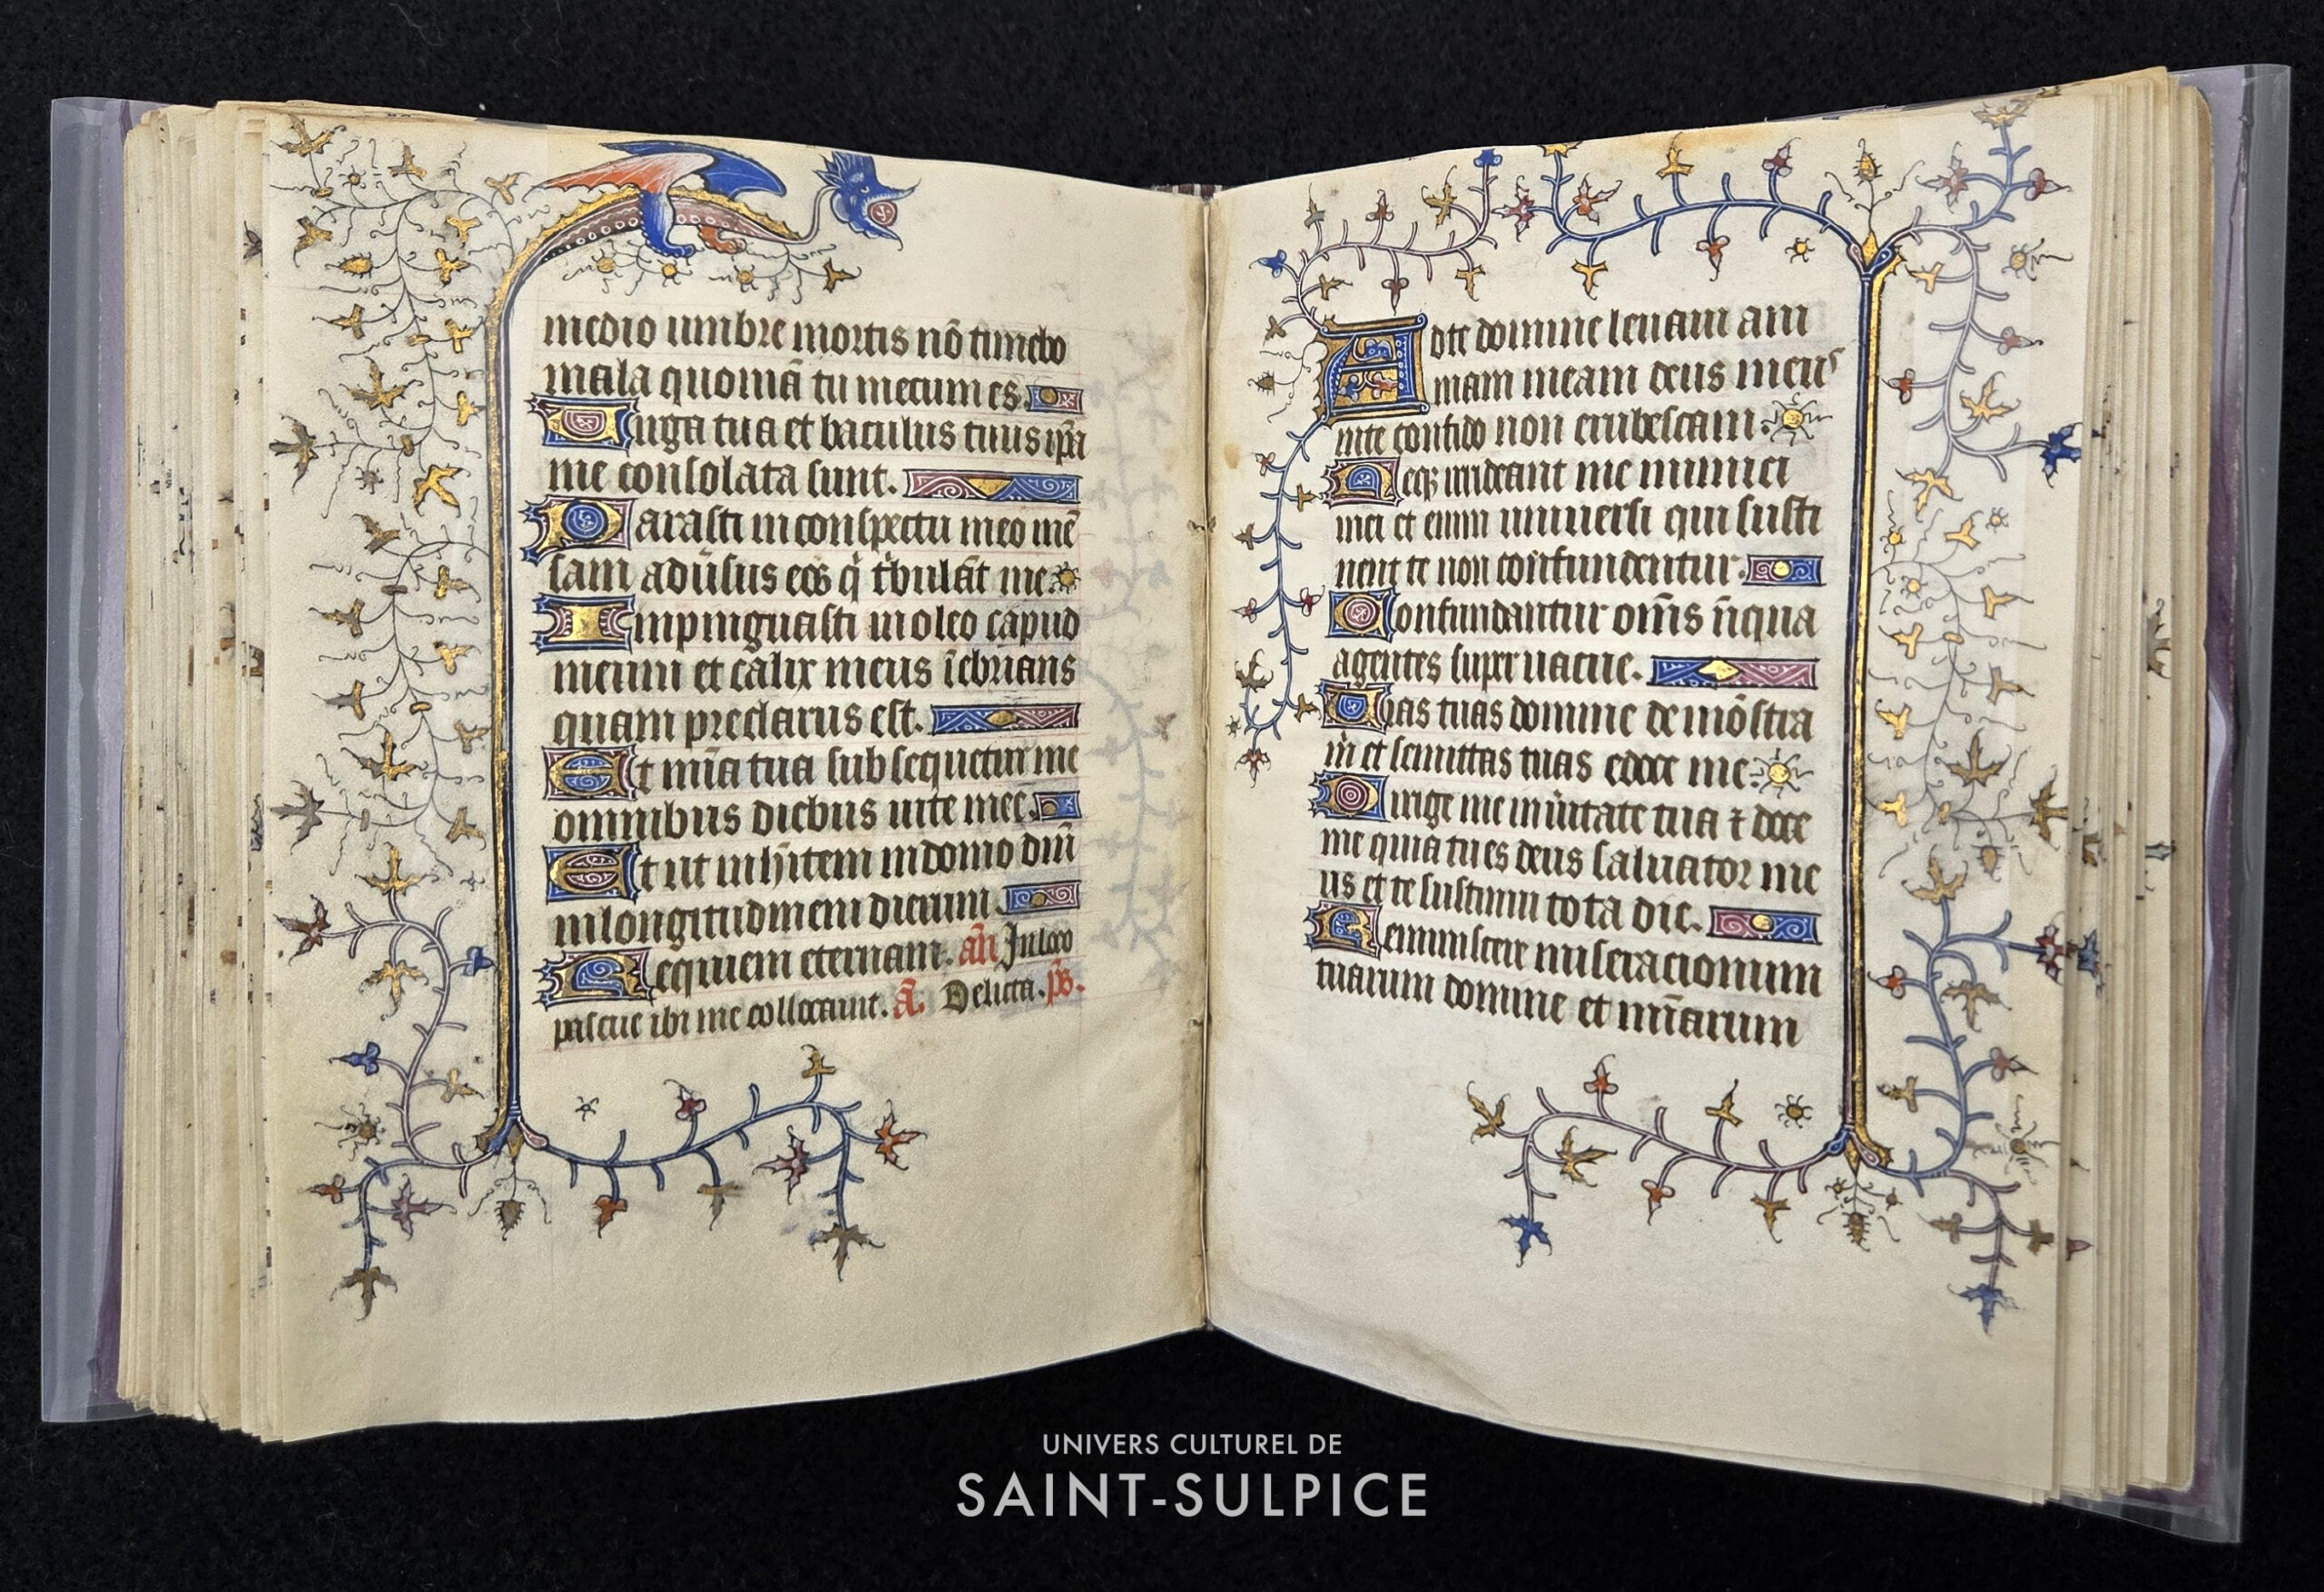 medio umbre mortis nō timebo
mala quoniā tu mecum es.
Uirga tua et baculus tuus ip̄a
me consolata sunt.
Parasti in conspectu meo mē
sam adūsus eos q̄ t̄bulāt me
Impinguasti in oleo capud
meum et calix meus īebrians
quam preclarus est.
Et mīa tua subsequetur me
omnibus diebus uite mee.
Et ut inh̄item in domo dm̄i
in longitudinem dierum.
Requiem eternam. añ In loco
pascue ibi me collocauit. ā. Delicta. p̄s.
Ad te domine leuaui ani
mam meam deus meus
in te confido non erubescam.
Neqꝫ irrideant me inimici
mei et enim uniuersi qui susti
nent te non confundentur.
Confundantur om̄s iniqua
agentes superuacue.
Uias tuas domine demōstra
m̄ et semittas tuas edoce me.
Dirige me in ūitate tua ⁊ doce
me quia tu es deus saluator me
us et te sustinui tota die.
Reminiscere miseracionum
tuarum domine et mīarum
UNIVERS CULTUREL DE
SAINT-SULPICE